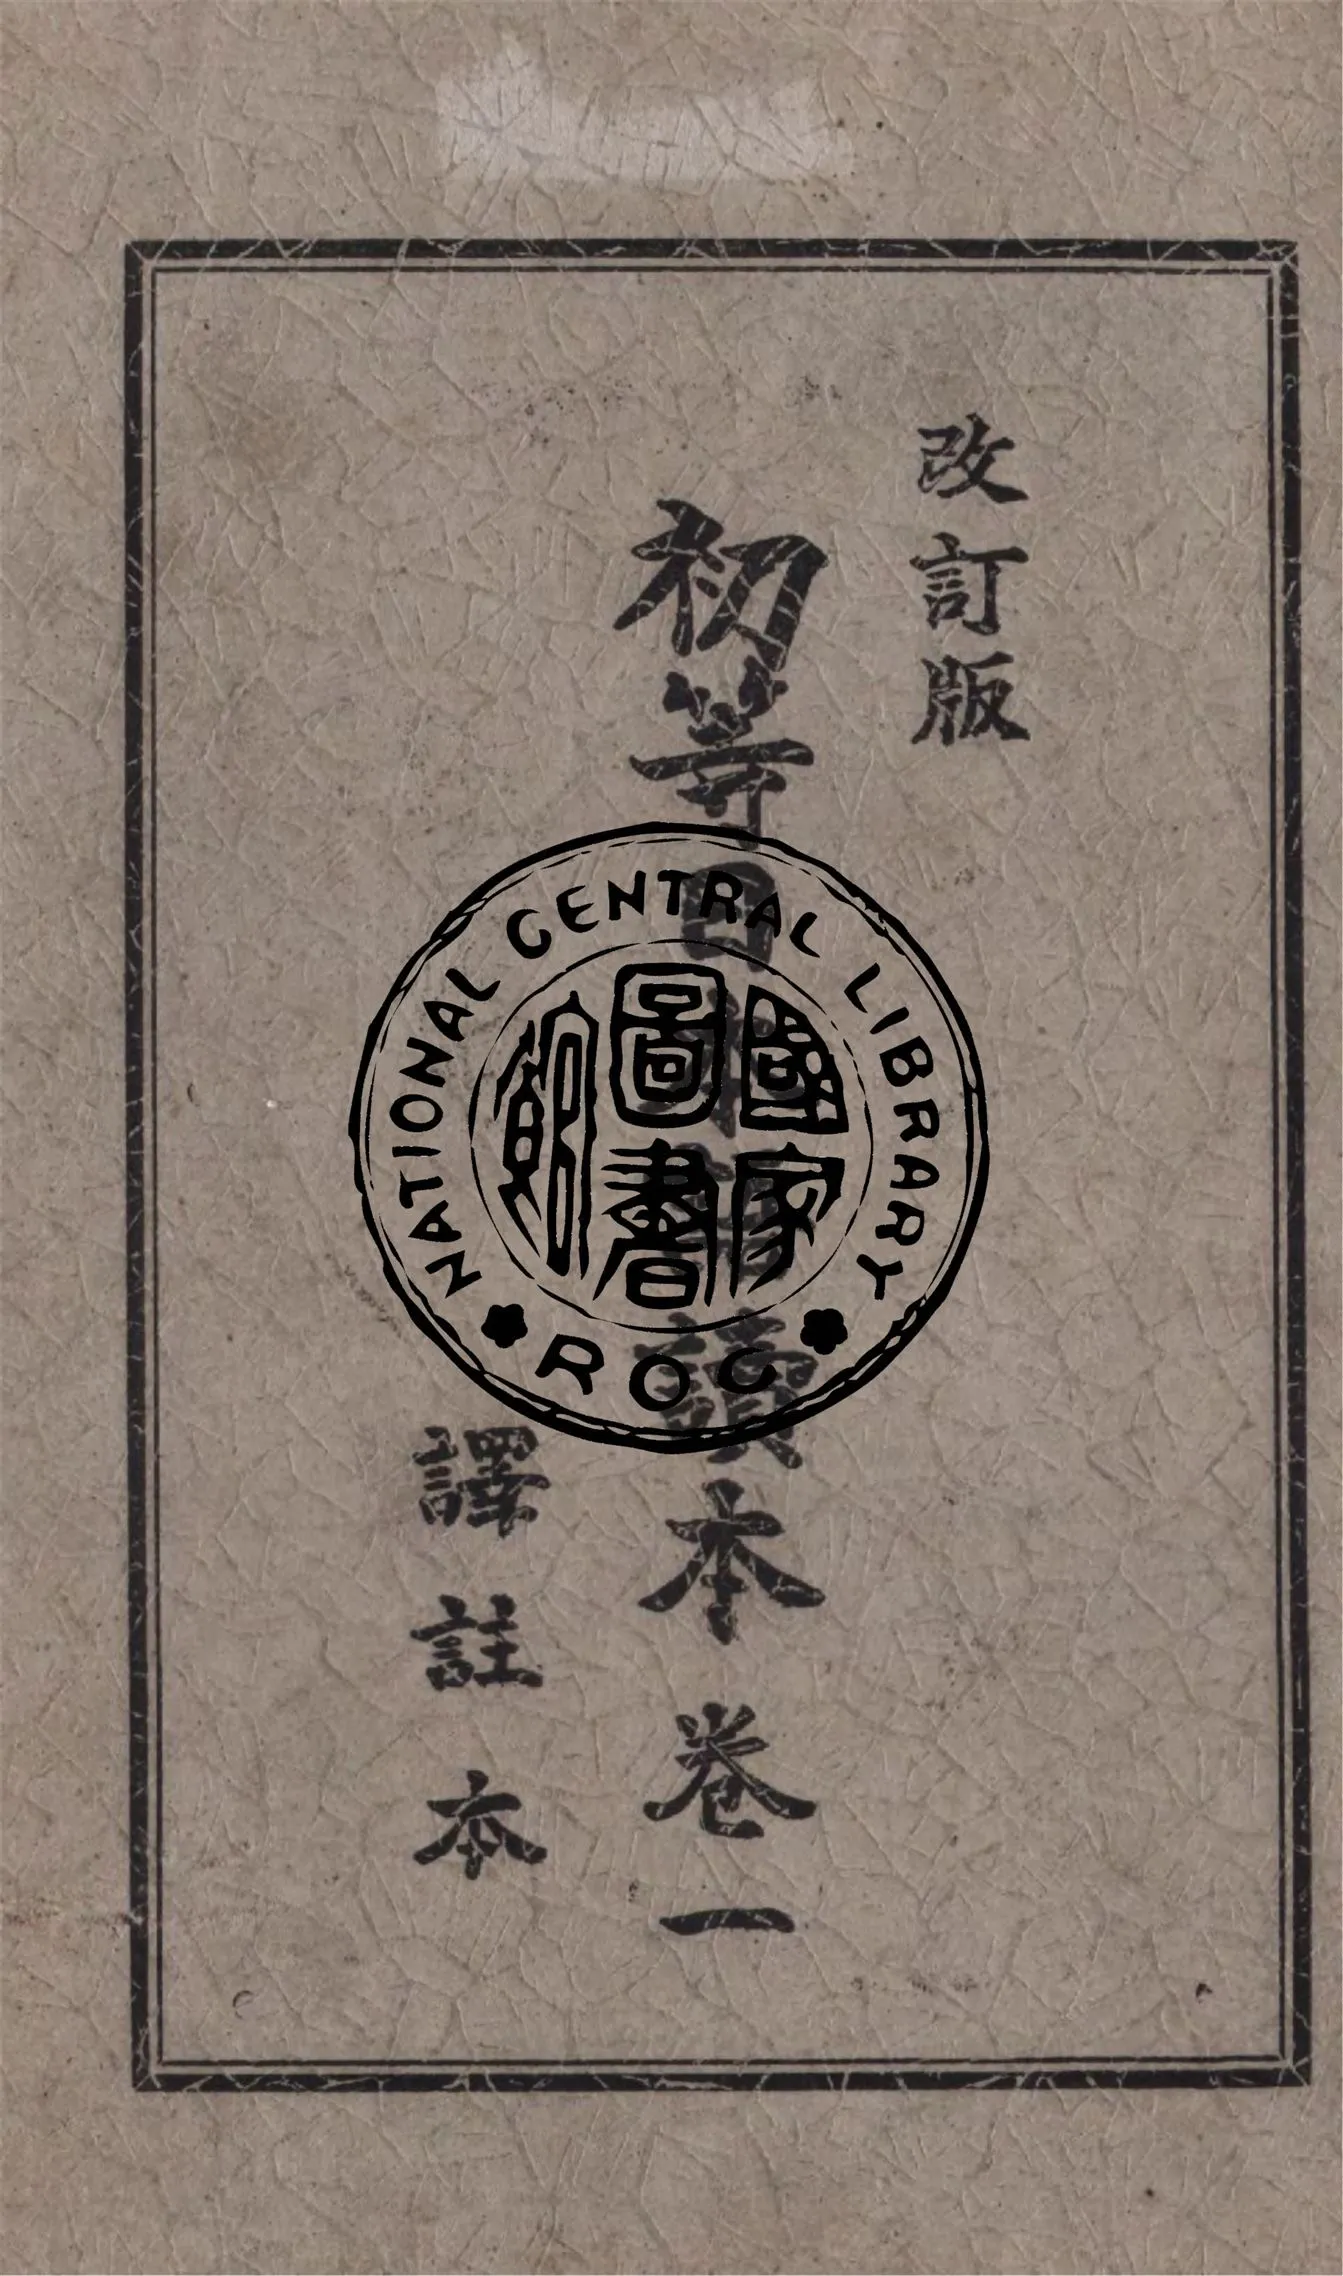 改訂版
初等日本語讀本 卷一
譯註本
NATIONAL CENTRAL LIBRARY
國家
圖書
館
ROC